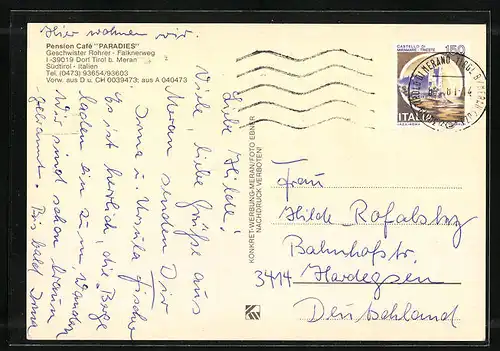 Hier wohnen wir.
Pension Café "PARADIES"
Geschwister Rohrer - Falknerweg
I-39019 Dorf Tirol b. Meran
Südtirol - Italien
Tel. (0473) 93654/93603
Vorw. aus D u. CH 0039473; aus A 040473
Liebe Hilde!
Viele, liebe Grüße aus
Meran senden Dir
Irma u. Ursula Fischer
Es ist herrlich, die Berge
laden ein zum Wandern
Wir sind schon braun
gebrannt. Bis bald Irma
KONKRET-WERBUNG-MERAN/FOTO EBNER
NACHDRUCK VERBOTEN!
CASTELLO DI
MIRAMARE TRIESTE
150
ITALIA
Frau
Hilde
Bahnhofstr.
3414 Hardegsen
Deutschland